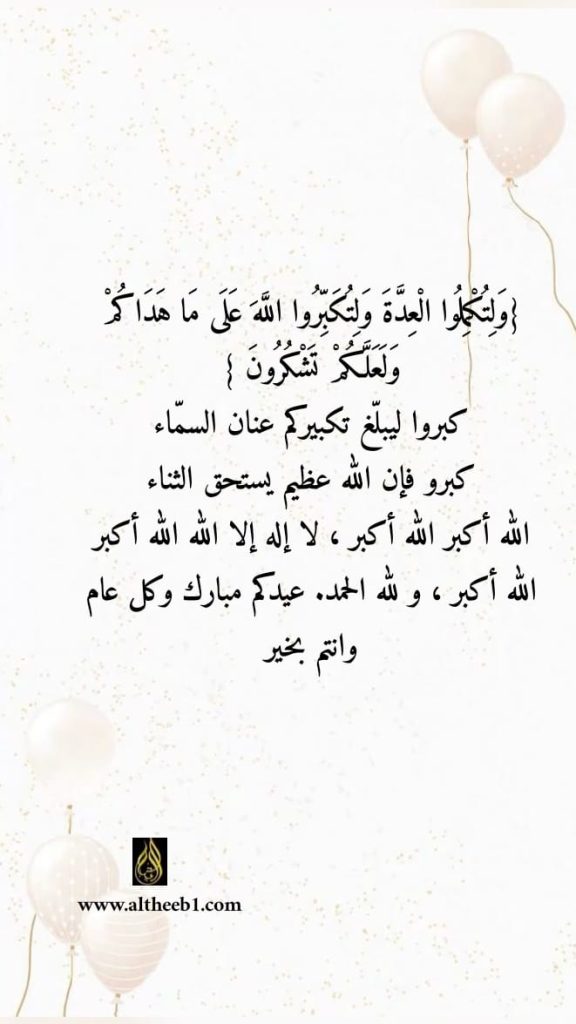 {وَلِتُكْمِلُوا الْعِدَّةَ وَلِتُكَبِّرُوا اللَّهَ عَلَى مَا هَدَاكُمْ
وَلَعَلَّكُمْ تَشْكُرُونَ }
كبروا ليبلّغ تكبيركم عنان السمّاء
كبرو فإن الله عظيم يستحق الثناء
الله أكبر الله أكبر ، لا إله إلا الله الله أكبر
الله أكبر ، و لله الحمد. عيدكم مبارك وكل عام
وانتم بخير
www.altheeb1.com